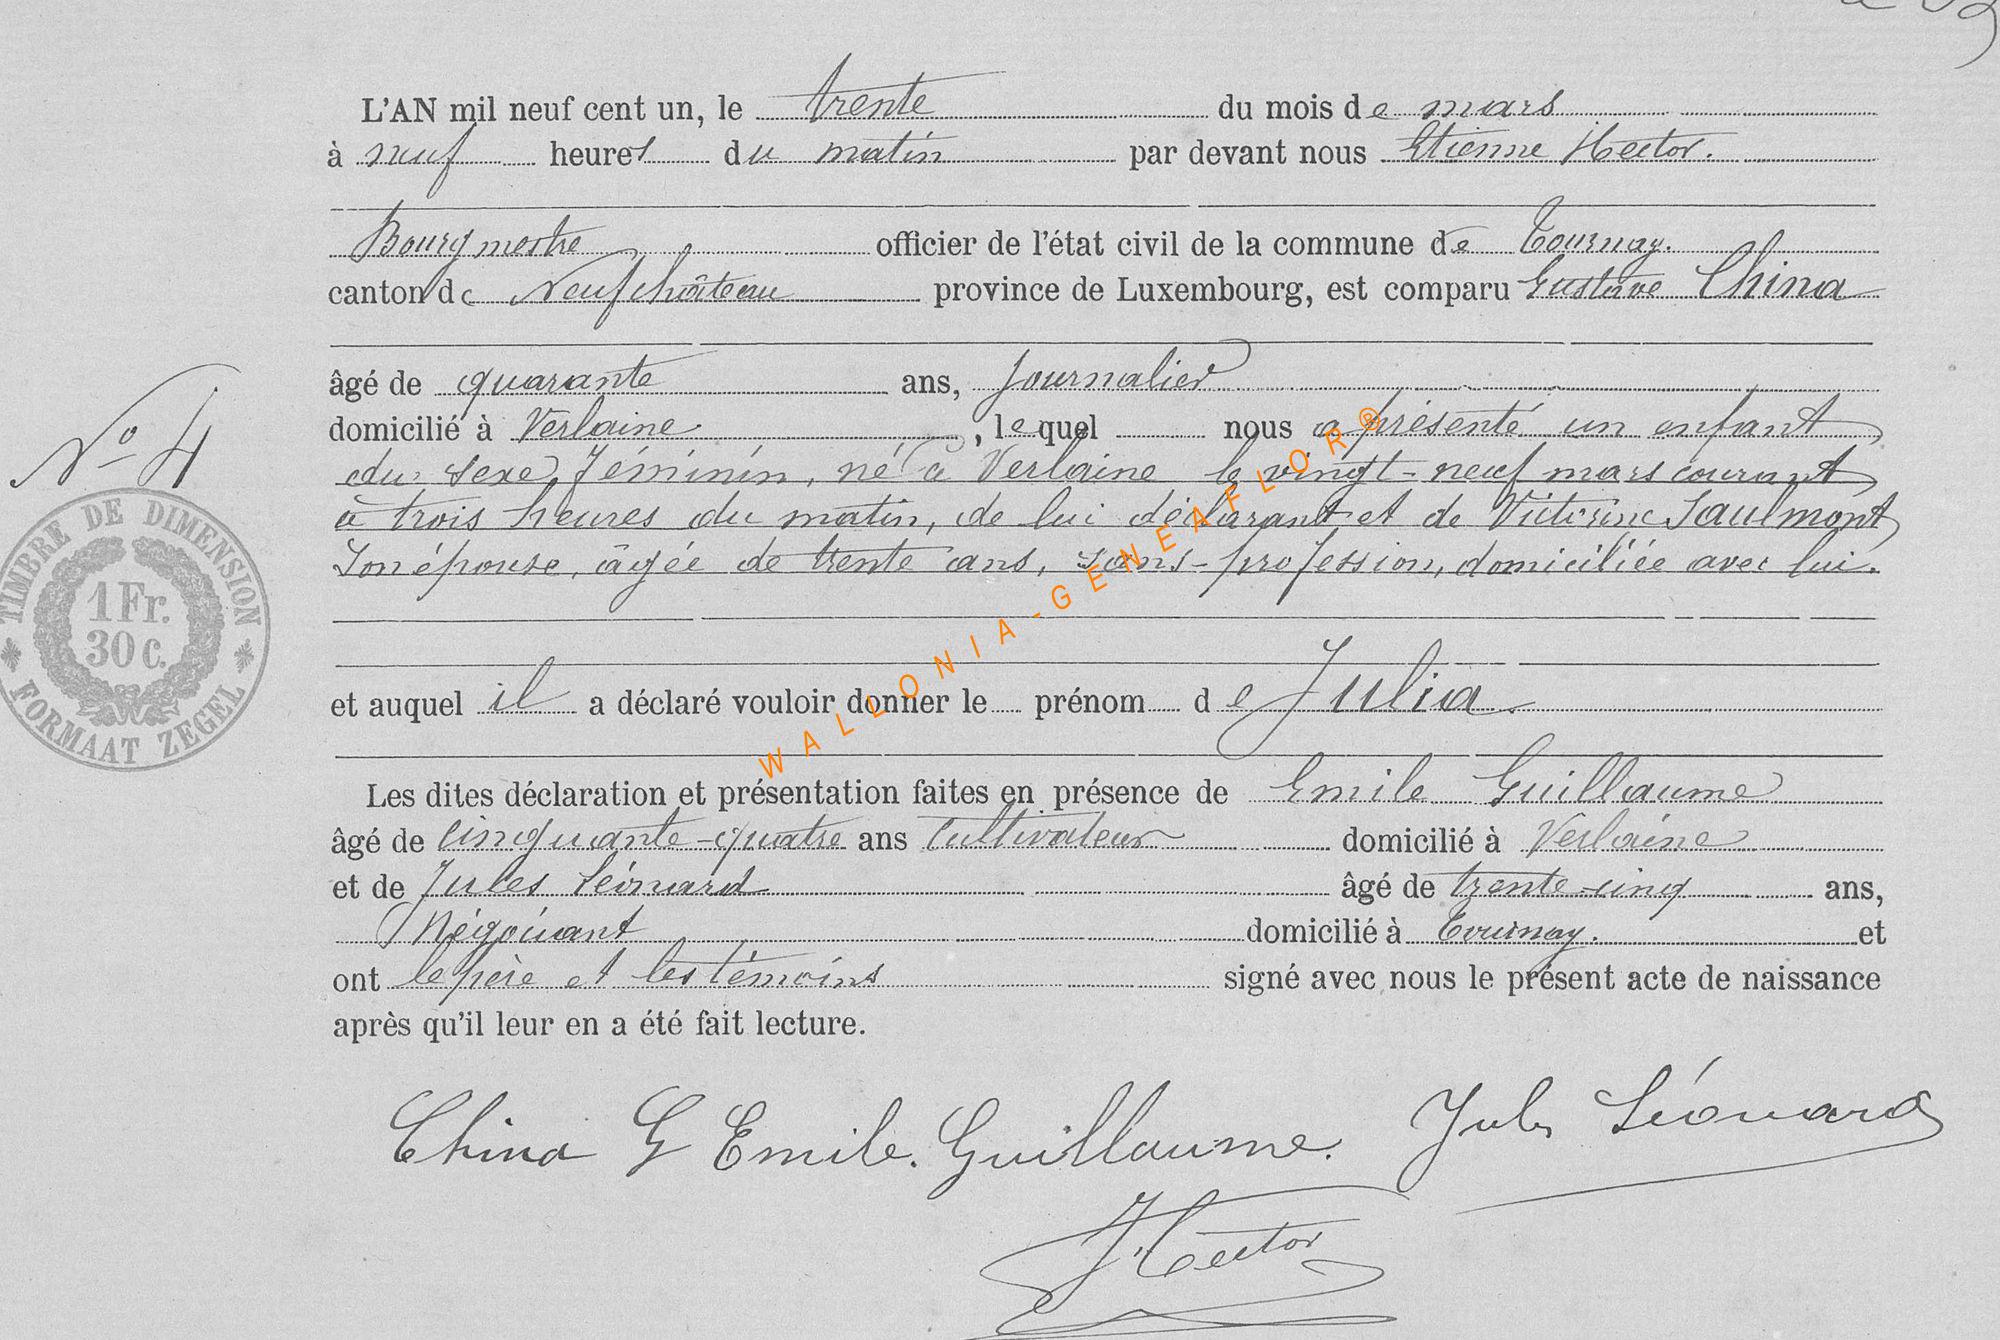 L'AN mil neuf cent un, le trente du mois de mars
à neuf heures du matin par devant nous Etienne Hector.
Bourgmestre officier de l'état civil de la commune de Tournay.
canton de Neufchâteau province de Luxembourg, est comparu Gustave China
âgé de quarante ans, journalier
domicilié à Verlaine, lequel nous a présenté un enfant
du sexe féminin, né à Verlaine le vingt-neuf mars courant
à trois heures du matin, de lui déclarant et de Victorine Saulmont
son épouse, âgée de trente ans, sans-profession, domiciliée avec lui.
et auquel il a déclaré vouloir donner le prénom de Julia.
Les dites déclaration et présentation faites en présence de Emile Guillaume
âgé de cinquante-quatre ans cultivateur domicilié à Verlaine
et de Jules Léonard âgé de trente-cinq ans,
Négociant domicilié à Tournay. et
ont le père et les témoins signé avec nous le présent acte de naissance
après qu'il leur en a été fait lecture.
China G Emile. Guillaume. Jules Léonard
Hector
N° 4
TIMBRE DE DIMENSION
1 Fr.
30 C.
FORMAAT ZEGEL
WALLONIA-GENEAFLOR®